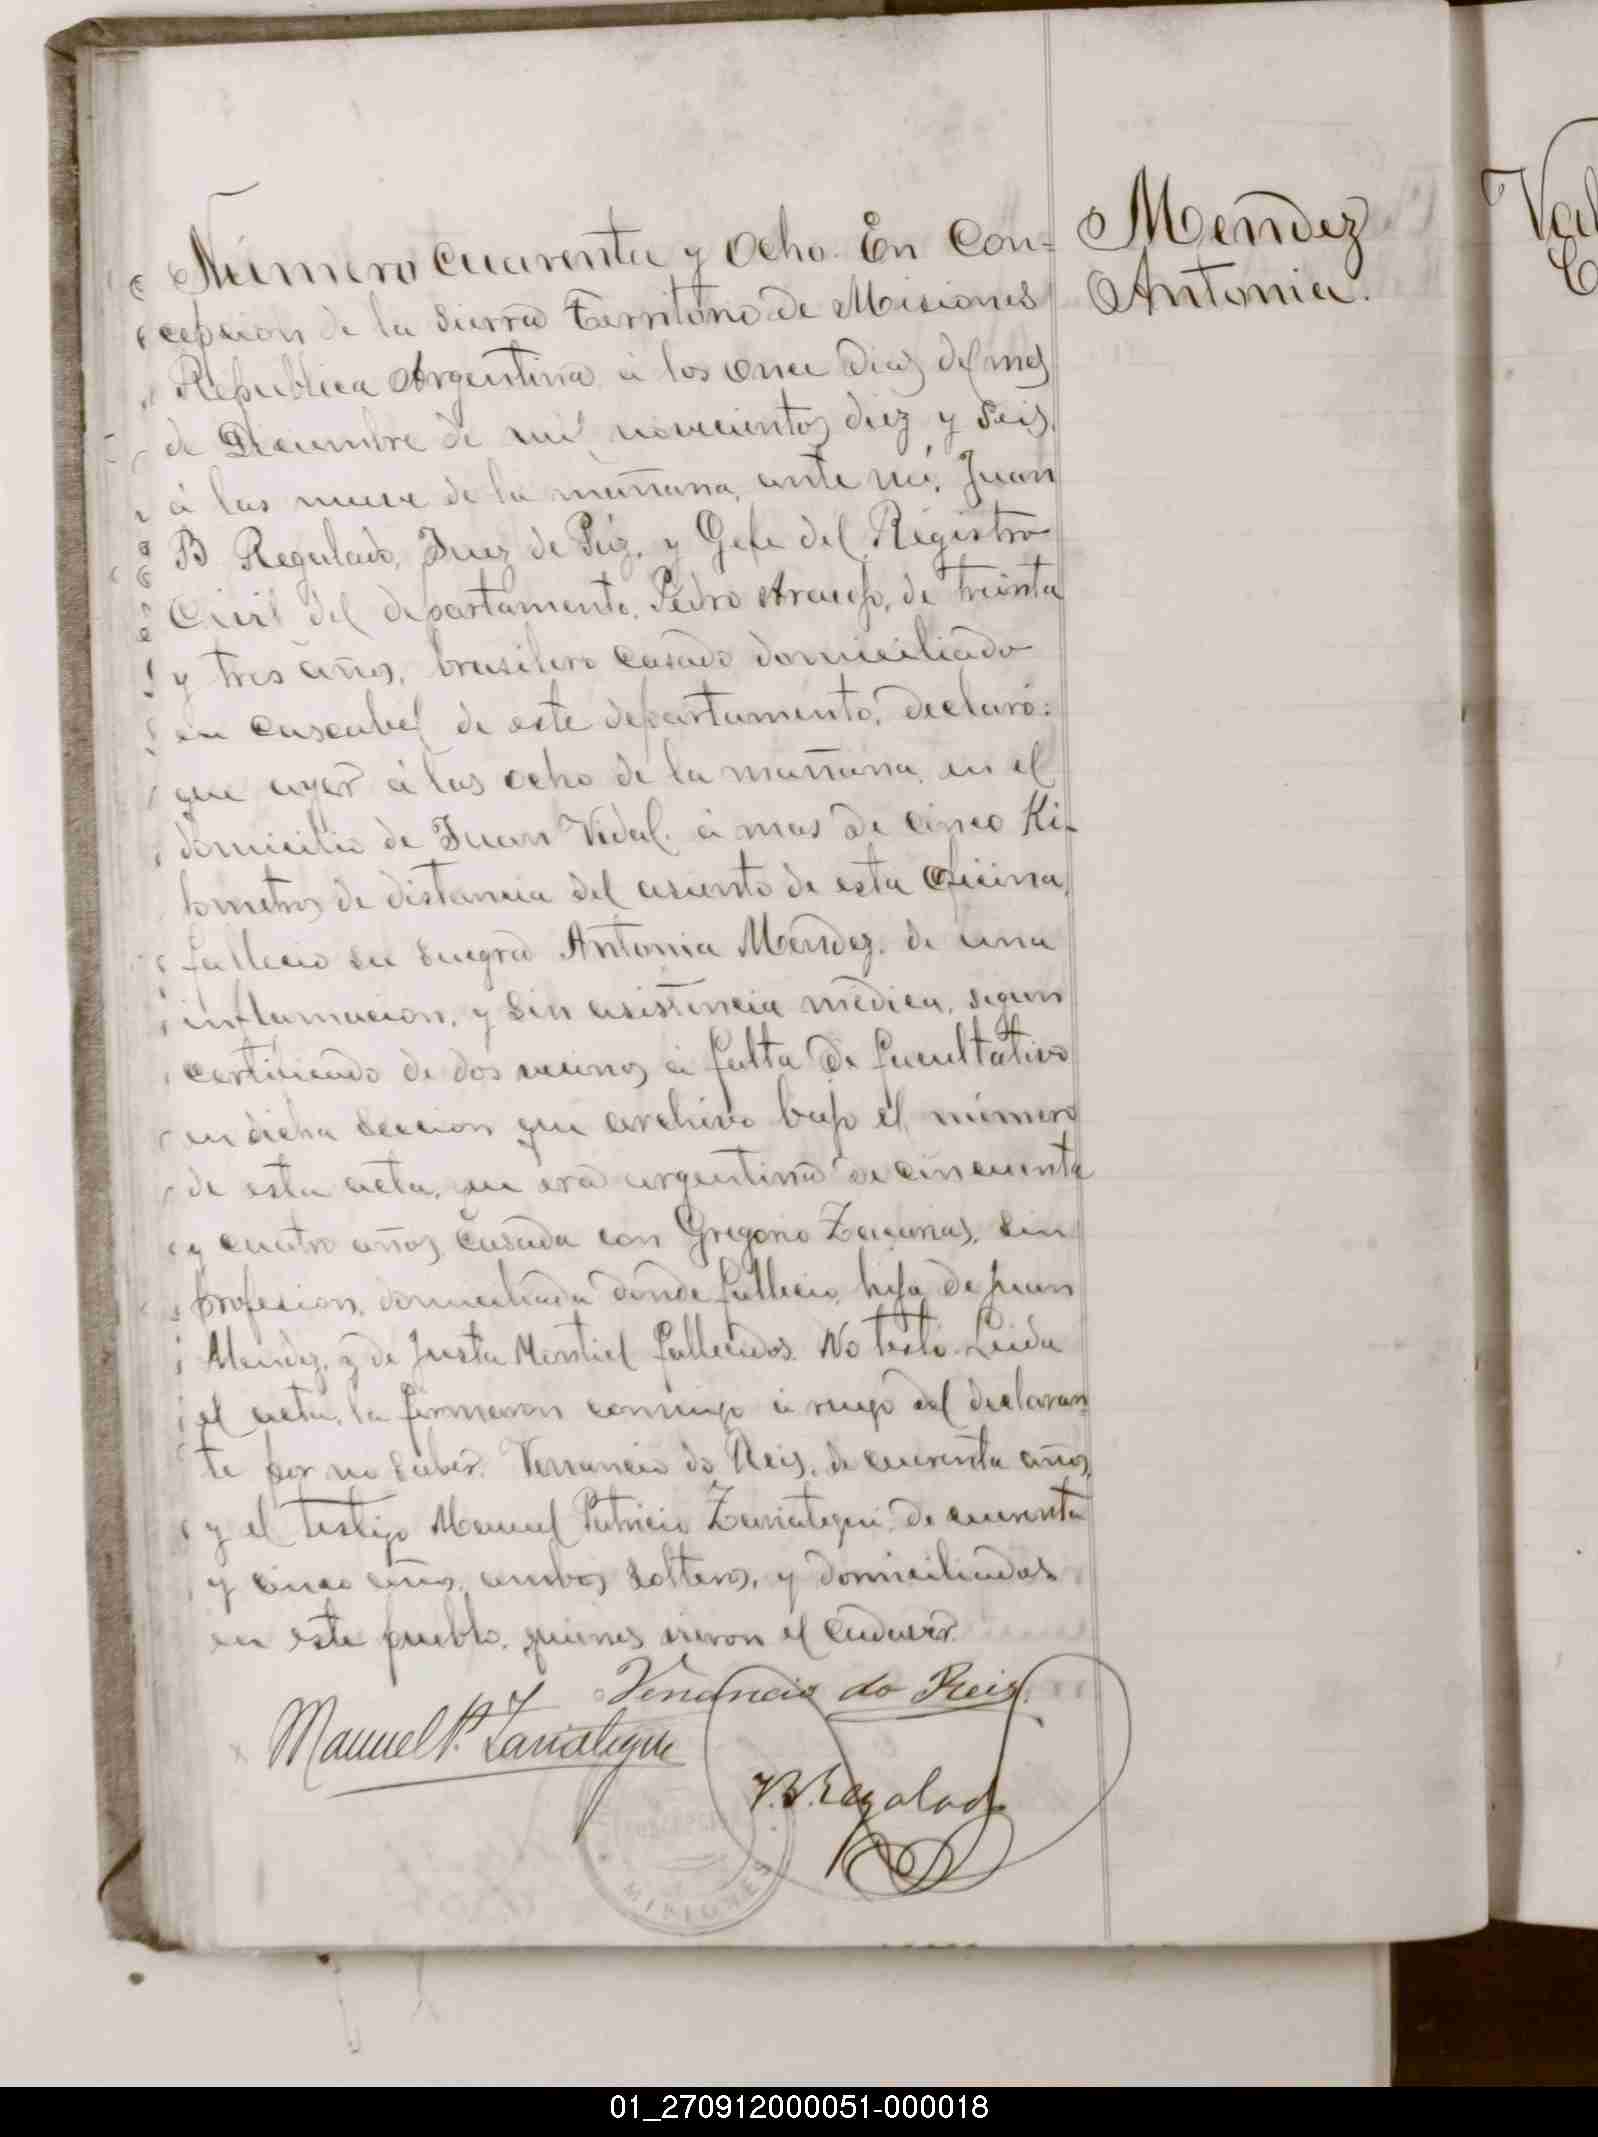 Número Cuarenta y Ocho. En Con=
cepcion de la Sierra Territorio de Misiones
Republica Argentina á los once dias del mes
de Diciembre de mil novecientos diez y seis,
á las nueve de la mañana, ante mi, Juan
B Regulado, Juez de Páz, y Gefe del Registro
Civil del departamento, Pedro Araujo, de treinta
y tres años, brasilero casado domiciliado
en Cascabel de este departamento, declaró:
que ayer á las ocho de la mañana, en el
domicilio de Juan Vidal á mas de cinco Ki-
lometros de distancia del asiento de esta Oficina,
fallecio su suegra Antonia Mendez, de una
inflamacion, y sin asistencia médica, segun
certificado de dos vecinos á falta de facultativo
en dicha seccion que archivo bajo el número
de esta acta, que era argentina de cincuenta
y cuatro años, casada con Gregorio Zacarias, sin
profesion, domiciliada donde fallecio, hija de Juan
Mendez, y de Justa Montiel fallecidos. No testó. Leida
el acta, la firmaron conmigo á ruego del declaran-
te por no saber. Venancio do Reis, de cuarenta años,
y el testigo Manuel Patricio Zarrategui, de cuarenta
y cinco años, ambos solteros, y domiciliados
en este pueblo, quienes vieron el cadaver.
Venancio do Reis
Manuel P.
J.B.Regalado
MISIONES
Mendez
Antonia.
01_270912000051-000018